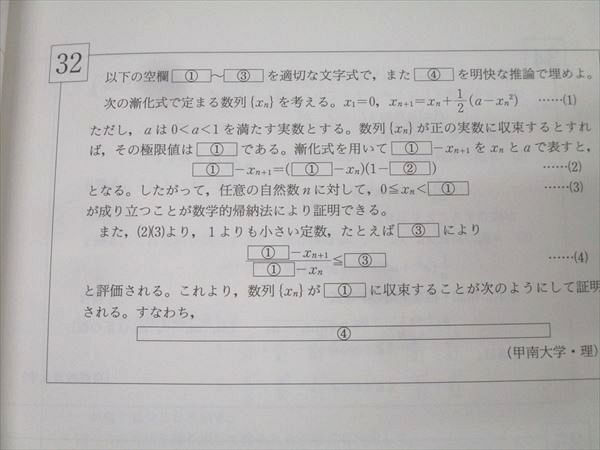 32
以下の空欄 ① ～ ③ を適切な文字式で，また ④ を明快な推論で埋めよ。
次の漸化式で定まる数列{xₙ}を考える。x₁=0，xₙ₊₁=xₙ+1/2(a−xₙ²) ……(1)
ただし，aは0<a<1を満たす実数とする。数列{xₙ}が正の実数に収束するとすれ
ば，その極限値は ① である。漸化式を用いて ① −xₙ₊₁をxₙとaで表すと，
① −xₙ₊₁=( ① −xₙ)(1− ② ) ……(2)
となる。したがって，任意の自然数nに対して，0≦xₙ< ① ……(3)
が成り立つことが数学的帰納法により証明できる。
また，(2)(3)より，1よりも小さい定数，たとえば ③ により
① −xₙ₊₁ / ① −xₙ ≦ ③ ……(4)
と評価される。これより，数列{xₙ}が ① に収束することが次のようにして証明
される。すなわち，
④
(甲南大学・理)